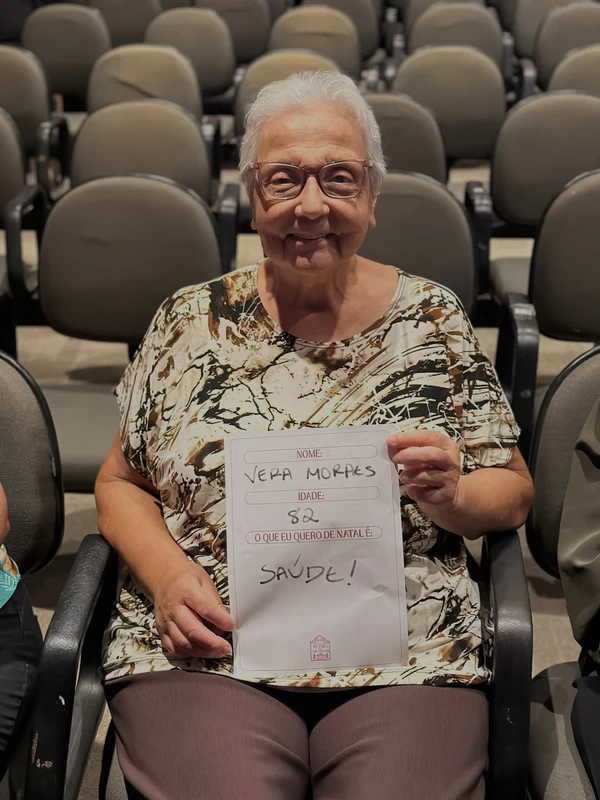 NOME:
VERA MORAES
IDADE:
82
O QUE EU QUERO DE NATAL É:
SAÚDE!